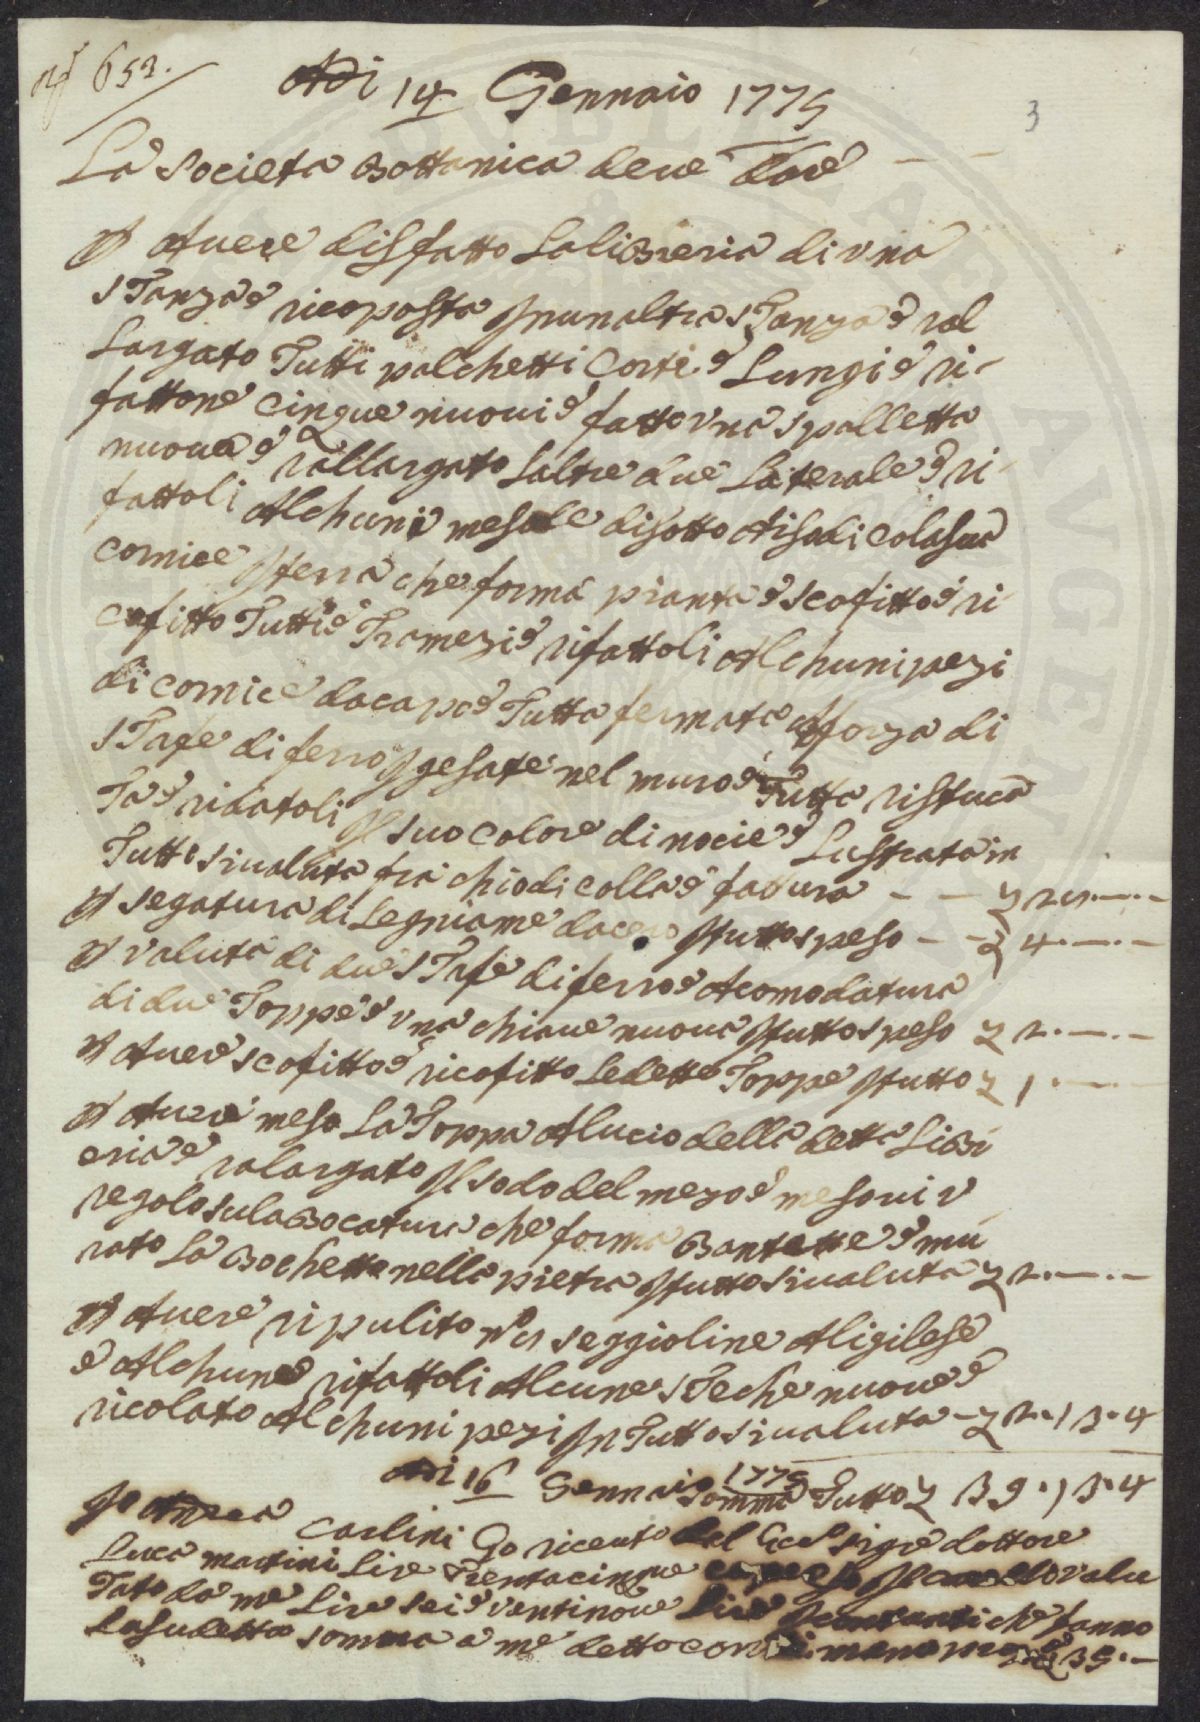 N° 652.
Adi 14 Gennaio 1775
3
La Societa Bottanica deue dare
P Auere disfatto La liBreria di vna
sTanza e ricoposta In unaltra sTanza e ral
Largato Tutti palchetti Corti e Lungi e ri-
fattone cinque nuoui e fatto vna spalletta
nuoua e rallargato Laltre due Laterale e ri-
fattoli Alchuni mesole disotto colasua
cornice Iterra che forma pianta e scofitto e ri
cofitto Tutti e Tramezi e rifattoli Alchuni pezi
di cornice dacapo e Tutta fermata Afforza di
sTafe di ferro Ingesate nel muro e Tutta ristuca
Ta e ridatoli Il suo colore di nocie e Lustrata in
Tutto siualuta fra chiodi colla e fattura
P segatura di Legniame Itutto speso - - £ 4.-.-
P valuta di due sTafe di ferro e Acomodatura
di due Toppe e vna chiaue nuoua Itutto speso £ 2.-.-
P Auere scofitto e ricofitto Ledette Toppe Itutto £ 1.-.-
P Auere meso La Toppa Alucio della detta LiBri
eria e ralargato Il sodo del mezo e mesoui v
regolo sula Bocatura che forma Bantette e mu
rato La Bochetta nella pietra Itutto siualuta £ 2.-.-
P Auere ripulito n° seggioline Aligilese
e Alchune rifattoli Alcune sTeche nuoue e
ricolato Alchuni pezi In Tutto siualuta - £ 2.13.4
Somma Tutto £ 35.13.4
Adi 16 Gennaio 1775
Io Andrea Carlini O riceuto dal Ecc° Sigre dottore
Luca martini Lire Trentacinque Il valu
Tato da me Lire sei e ventinoue Lire Icontanti che fanno
La sudetta somma a me detto mano propria £ 35.-